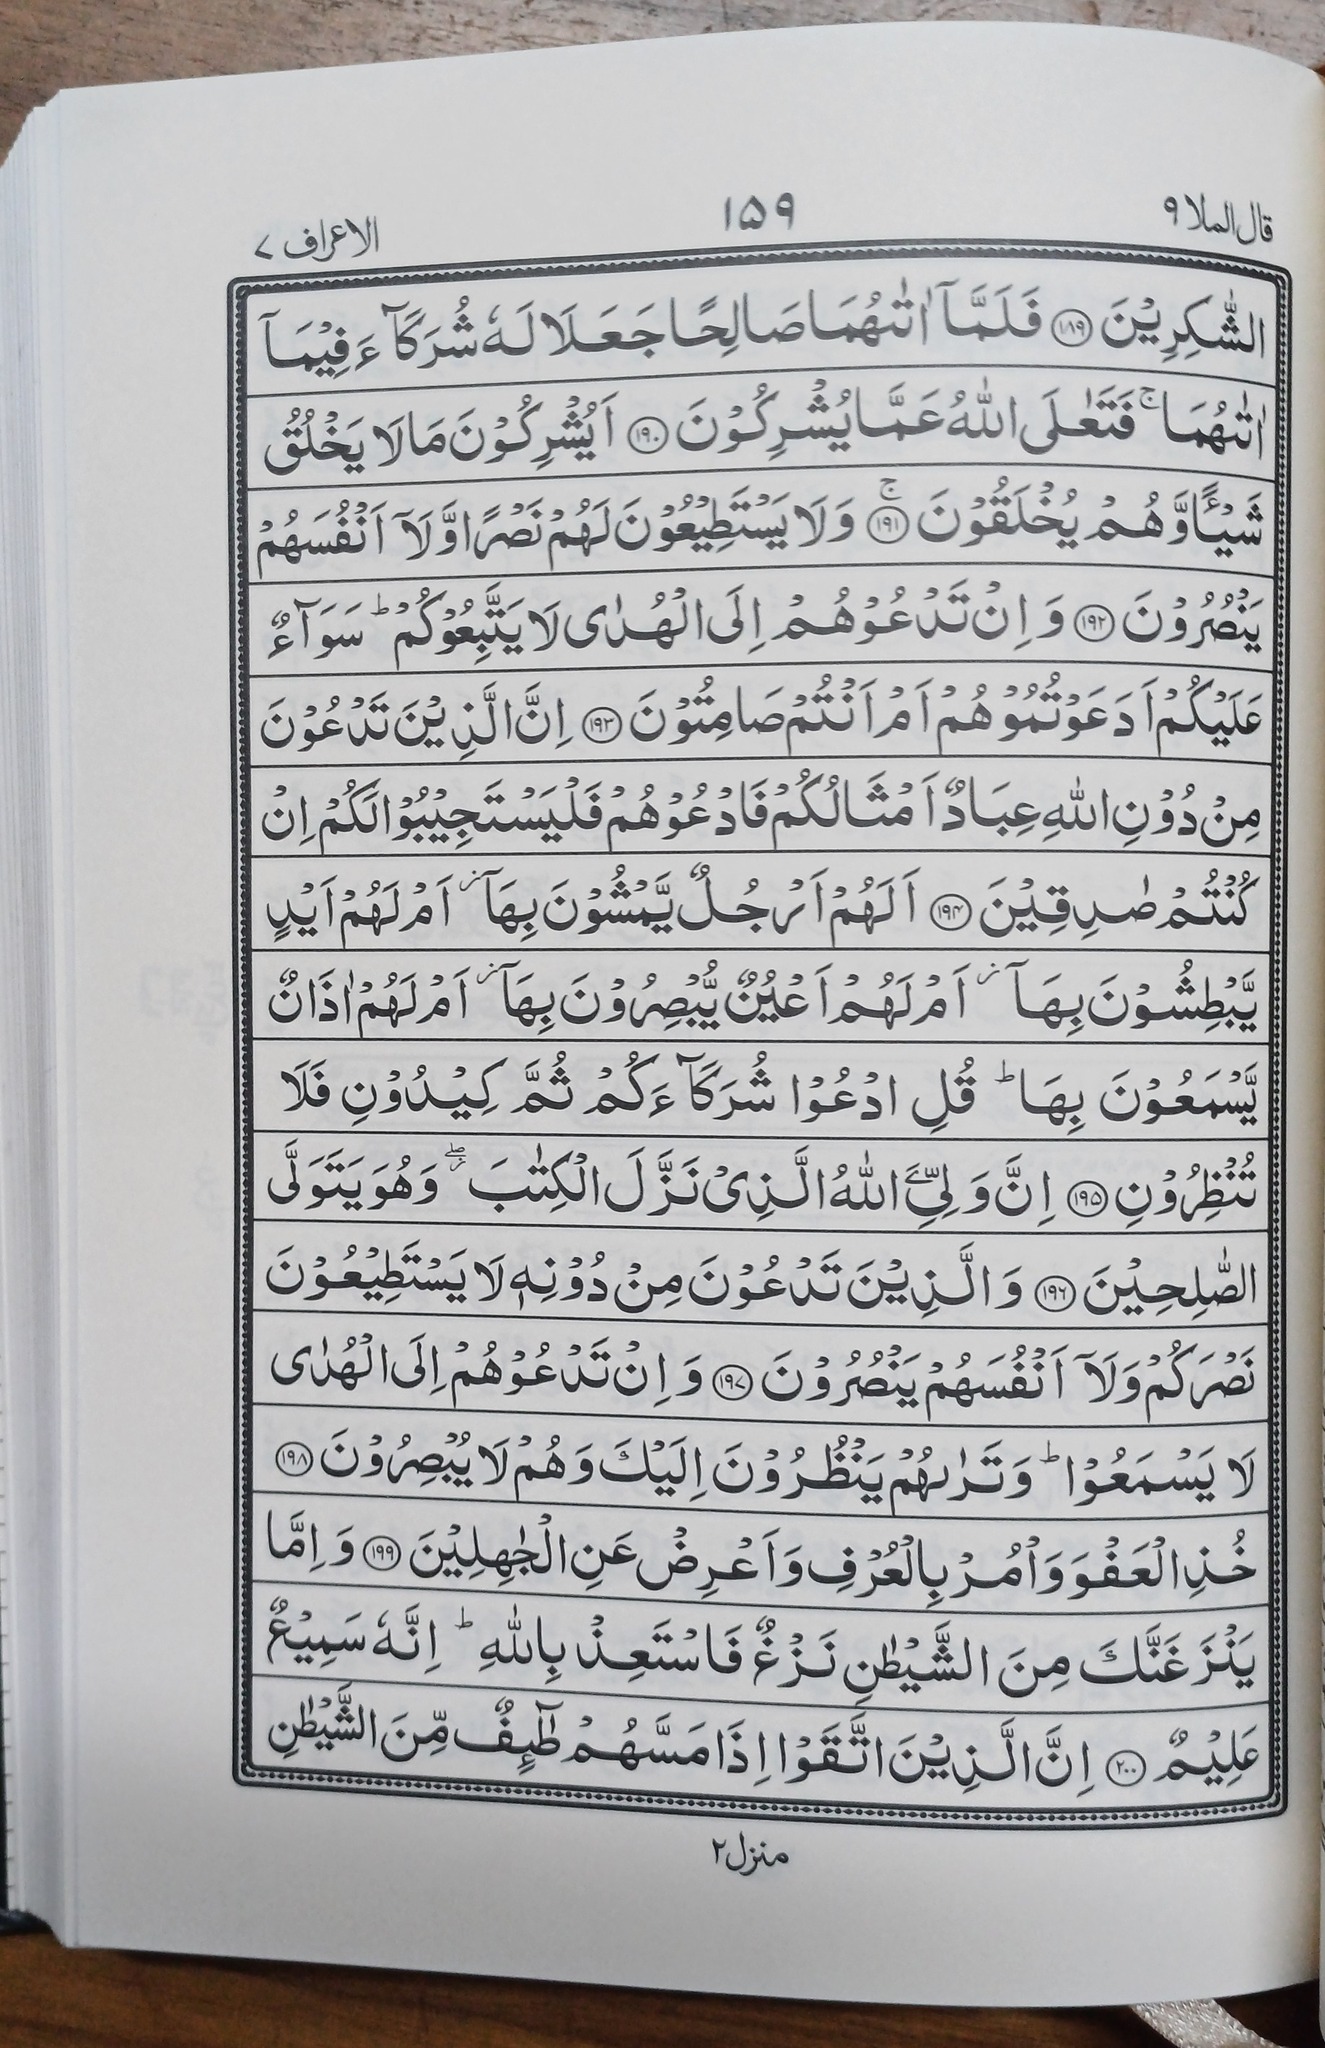 قال الملا ٩
١٥٩
الاعراف ٧
الشّٰكِرِيْنَ ۝١٨٩ فَلَمَّاۤ اٰتٰىهُمَا صَالِحًا جَعَلَا لَهٗ شُرَكَآءَ فِيْمَاۤ
اٰتٰىهُمَا ۚ فَتَعٰلَى اللّٰهُ عَمَّا يُشْرِكُوْنَ ۝١٩٠ اَيُشْرِكُوْنَ مَا لَا يَخْلُقُ
شَيْـًٔا وَّهُمْ يُخْلَقُوْنَ ۝١٩١ۚ وَلَا يَسْتَطِيْعُوْنَ لَهُمْ نَصْرًا وَّلَاۤ اَنْفُسَهُمْ
يَنْصُرُوْنَ ۝١٩٢ وَاِنْ تَدْعُوْهُمْ اِلَى الْهُدٰى لَا يَتَّبِعُوْكُمْ ؕ سَوَآءٌ
عَلَيْكُمْ اَدَعَوْتُمُوْهُمْ اَمْ اَنْتُمْ صَامِتُوْنَ ۝١٩٣ اِنَّ الَّذِيْنَ تَدْعُوْنَ
مِنْ دُوْنِ اللّٰهِ عِبَادٌ اَمْثَالُكُمْ فَادْعُوْهُمْ فَلْيَسْتَجِيْبُوْا لَكُمْ اِنْ
كُنْتُمْ صٰدِقِيْنَ ۝١٩٤ اَلَهُمْ اَرْجُلٌ يَّمْشُوْنَ بِهَاۤ ؗ اَمْ لَهُمْ اَيْدٍ
يَّبْطِشُوْنَ بِهَاۤ ؗ اَمْ لَهُمْ اَعْيُنٌ يُّبْصِرُوْنَ بِهَاۤ ؗ اَمْ لَهُمْ اٰذَانٌ
يَّسْمَعُوْنَ بِهَا ؕ قُلِ ادْعُوْا شُرَكَآءَكُمْ ثُمَّ كِيْدُوْنِ فَلَا
تُنْظِرُوْنِ ۝١٩٥ اِنَّ وَلِيِّۦَ اللّٰهُ الَّذِيْ نَزَّلَ الْكِتٰبَ ۖؗ وَهُوَ يَتَوَلَّى
الصّٰلِحِيْنَ ۝١٩٦ وَالَّذِيْنَ تَدْعُوْنَ مِنْ دُوْنِهٖ لَا يَسْتَطِيْعُوْنَ
نَصْرَكُمْ وَلَاۤ اَنْفُسَهُمْ يَنْصُرُوْنَ ۝١٩٧ وَاِنْ تَدْعُوْهُمْ اِلَى الْهُدٰى
لَا يَسْمَعُوْا ؕ وَتَرٰىهُمْ يَنْظُرُوْنَ اِلَيْكَ وَهُمْ لَا يُبْصِرُوْنَ ۝١٩٨
خُذِ الْعَفْوَ وَاْمُرْ بِالْعُرْفِ وَاَعْرِضْ عَنِ الْجٰهِلِيْنَ ۝١٩٩ وَاِمَّا
يَنْزَغَنَّكَ مِنَ الشَّيْطٰنِ نَزْغٌ فَاسْتَعِذْ بِاللّٰهِ ؕ اِنَّهٗ سَمِيْعٌ
عَلِيْمٌ ۝٢٠٠ اِنَّ الَّذِيْنَ اتَّقَوْا اِذَا مَسَّهُمْ طٰٓئِفٌ مِّنَ الشَّيْطٰنِ
منزل ٢